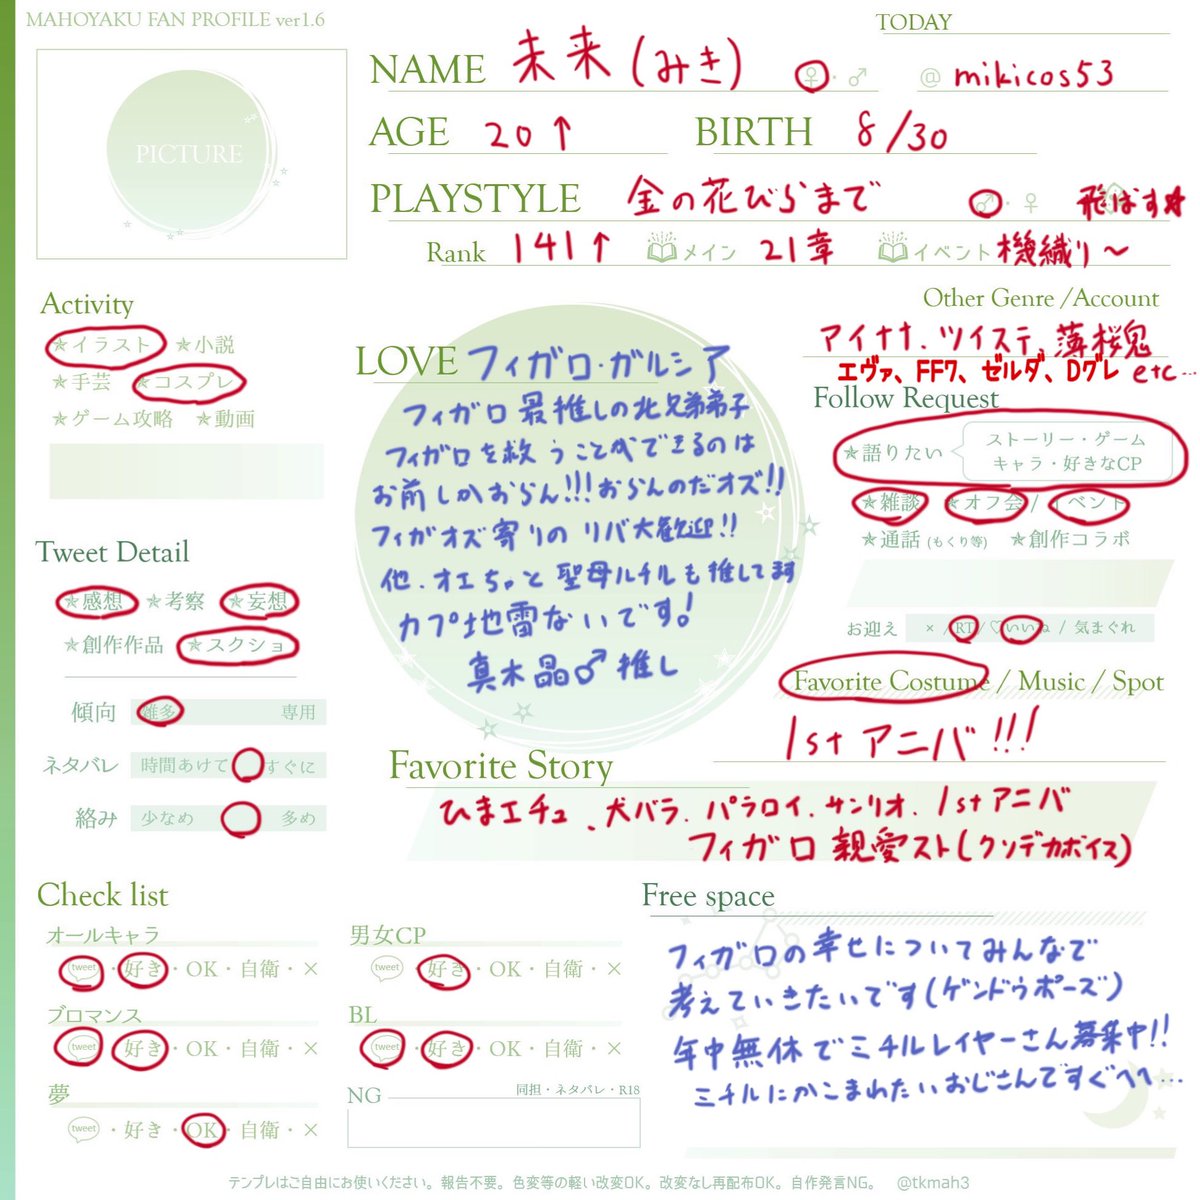 MAHOYAKU FAN PROFILE ver1.6
TODAY
PICTURE
NAME 未来(みき) ♀・♂ @ mikicos53
AGE 20↑ BIRTH 8/30
PLAYSTYLE 金の花びらまで ♂・♀ 飛ばす★
Rank 141↑ メイン 21章 イベント 機織り〜
Activity
★イラスト ★小説
★手芸 ★コスプレ
★ゲーム攻略 ★動画
Tweet Detail
★感想 ★考察 ★妄想
★創作作品 ★スクショ
傾向 雑多 専用
ネタバレ 時間あけて すぐに
絡み 少なめ 多め
LOVE フィガロ・ガルシア
フィガロ最推しの北兄弟弟子
フィガロを救うことができるのは
お前しかおらん!!!おらんのだオズ!!
フィガオズ寄りのリバ大歓迎!!
他、オエちゃと聖母ルチルも推してます
カプ地雷ないです!
真木晶♂推し
Other Genre /Account
アイナナ、ツイステ、薄桜鬼
エヴァ、FF7、ゼルダ、Dグレ etc…
Follow Request
★語りたい ストーリー・ゲーム
キャラ・好きなCP
★雑談 ★オフ会 / イベント
★通話 (もくり等) ★創作コラボ
お迎え × / RT / ♡いいね / 気まぐれ
Favorite Costume / Music / Spot
1stアニバ!!!
Favorite Story
ひまエチュ、犬バラ、パラロイ、サンリオ、1stアニバ
フィガロ親愛スト(クソデカボイス)
Check list
オールキャラ
tweet・好き・OK・自衛・×
ブロマンス
tweet・好き・OK・自衛・×
夢
tweet・好き・OK・自衛・×
男女CP
tweet・好き・OK・自衛・×
BL
tweet・好き・OK・自衛・×
NG 同担・ネタバレ・R18
Free space
フィガロの幸せについてみんなで
考えていきたいです(ゲンドウポーズ)
年中無休でミチルレイヤーさん募集中!!
ミチルにかこまれたいおじさんですぐへへ…
テンプレはご自由にお使いください。報告不要。色変等の軽い改変OK。改変なし再配布OK。自作発言NG。 @tkmah3